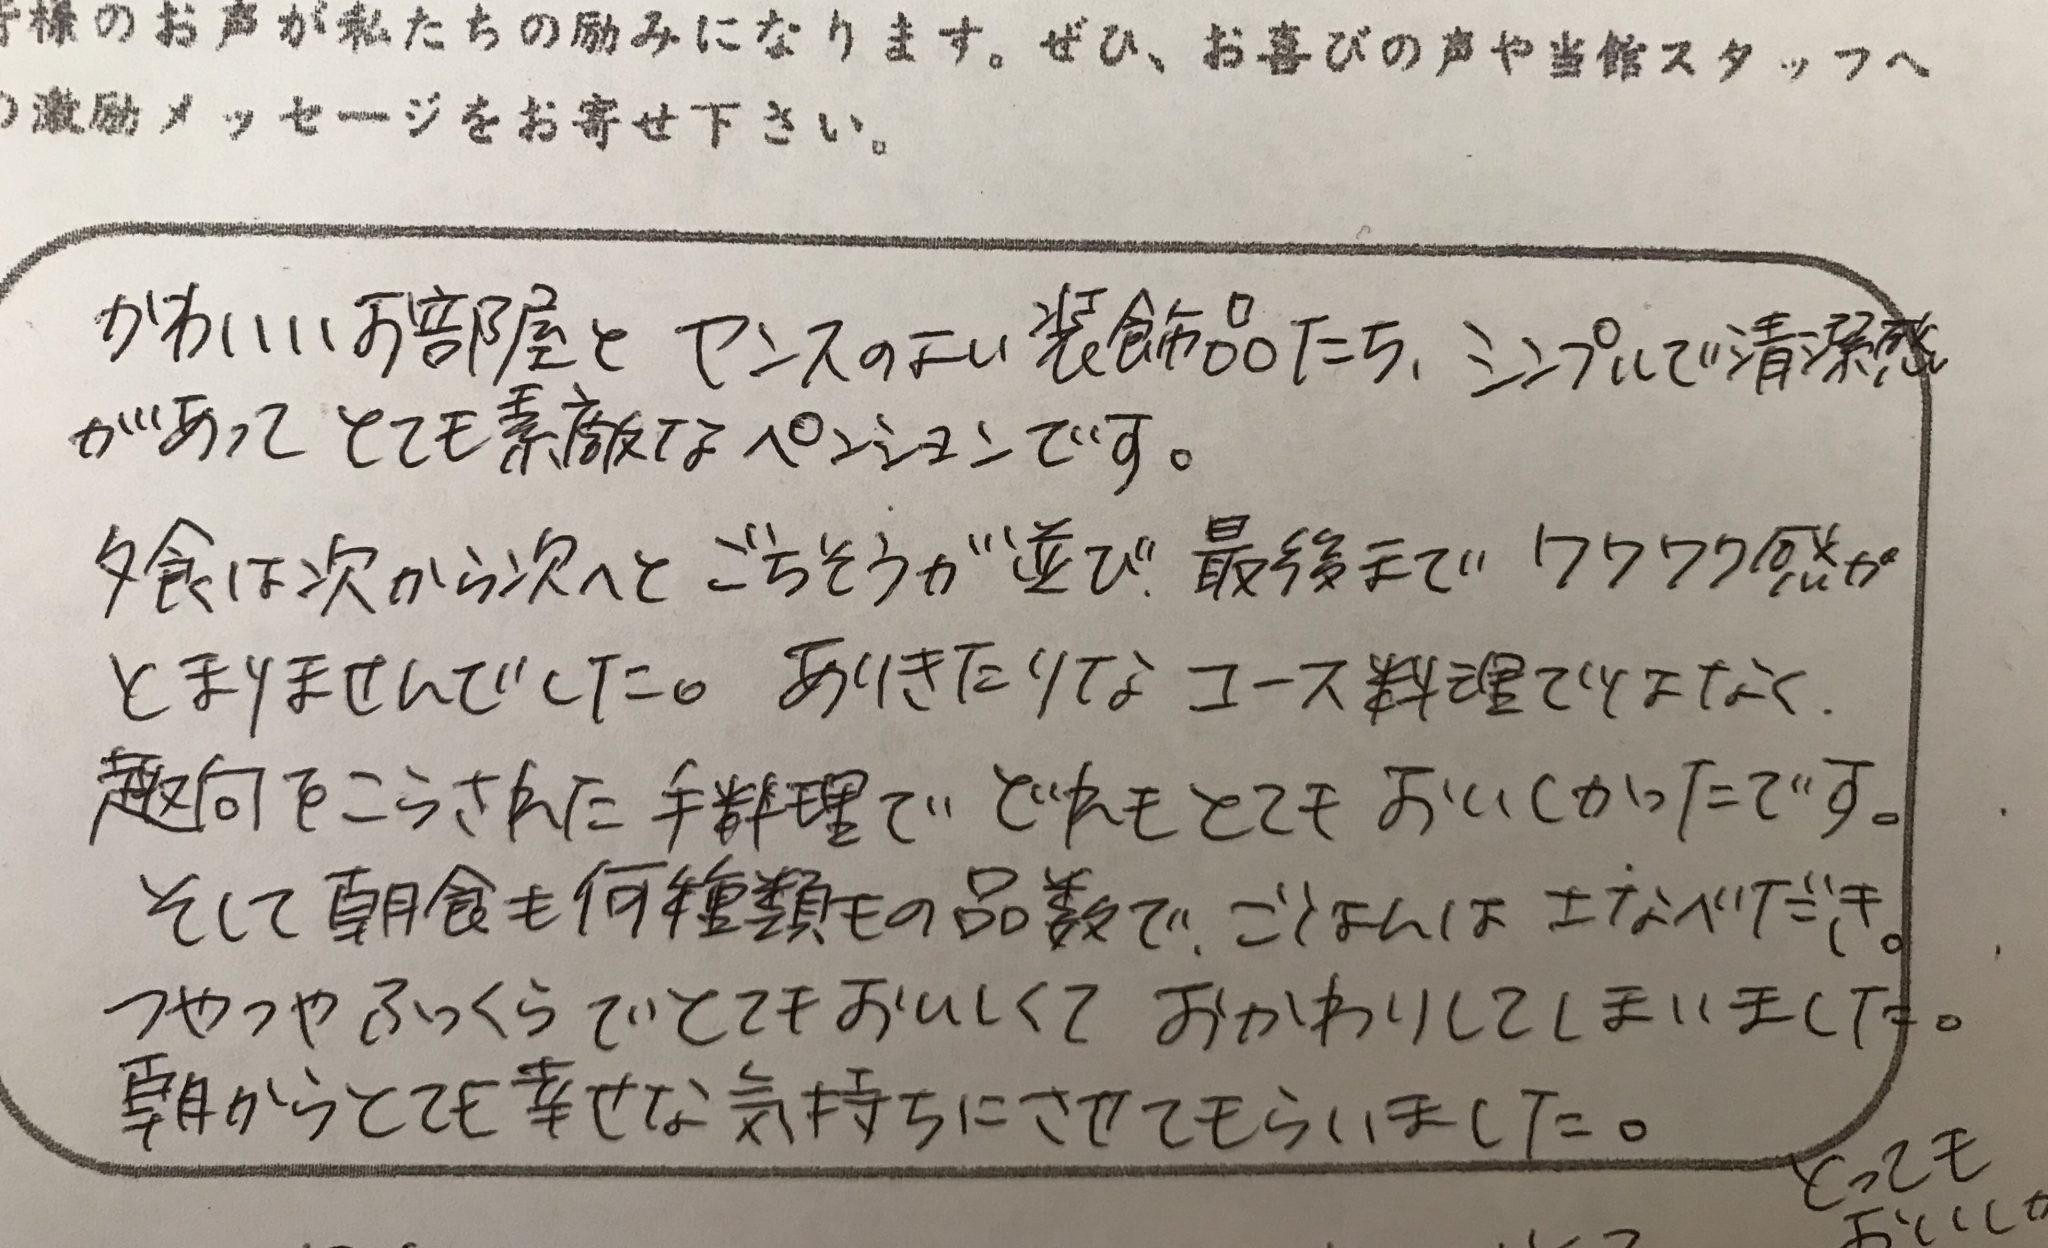 様のお声が私たちの励みになります。ぜひ、お喜びの声や当館スタッフへ
の激励メッセージをお寄せ下さい。
かわいいお部屋とセンスのよい装飾品たち、シンプルで清潔感
があってとても素敵なペンションです。
夕食は次から次へとごちそうが並び、最後までワクワク感が
とまりませんでした。ありきたりなコース料理ではなく、
趣向をこらされた手料理でどれもとてもおいしかったです。
そして朝食も何種類もの品数で、ごはんは土なべだき。
つやつやふっくらでとてもおいしくておかわりしてしまいました。
朝からとても幸せな気持ちにさせてもらいました。
とっても
おいしか